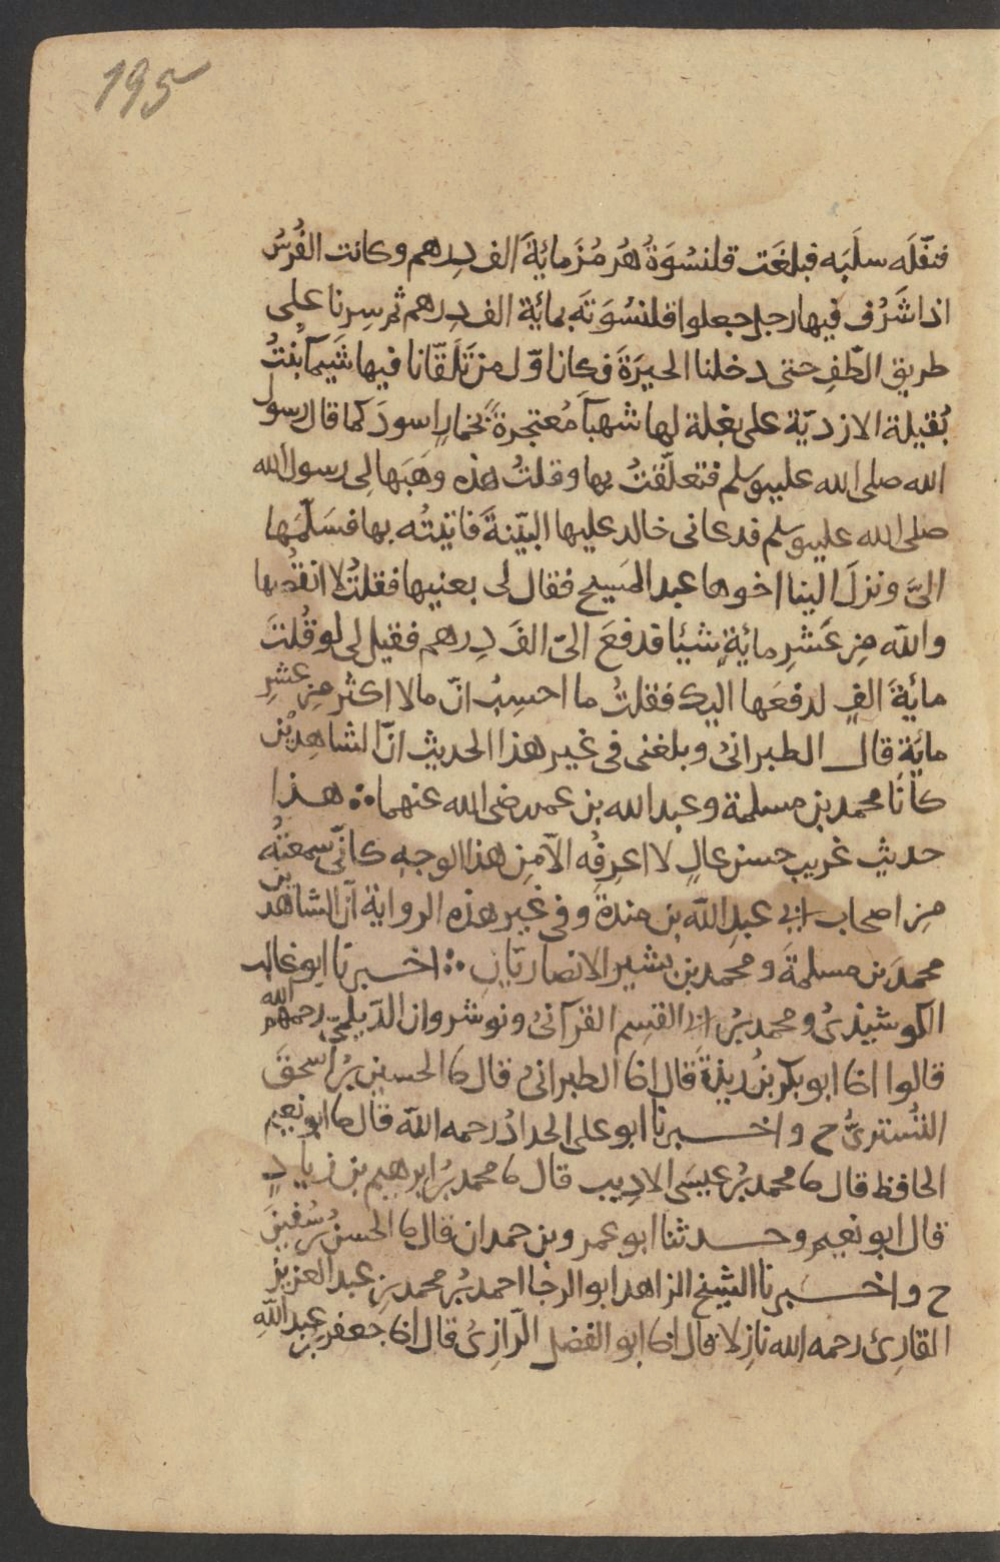 195
فنفّلَه سلَبَه فبلغَت قلنسُوَةُ هُرمُزَ مايَةَ الف دِرهم وكانت الفُرسُ
اذا شَرُف فيها رجل جعلوا قلنسُوَتَه بمائَة الف دِرهم ثم سِرنا على
طريق الطّفِ حتى دخلنا الحيرَةَ فكان اوّل من تَلَقّانا فيها شَيمآ بنتُ
بُقيلة الازديّة على بغلة لها شهبآءَ مُعتجرةً بخمارٍ اسودَ كما قال رسول
الله صلى الله عليه وسلم فتعلّقتُ بها وقلتُ هذه وهَبَها لِى رسول الله
صلى الله عليه وسلم فدعانى خالد عليها البيّنةَ فاتيتُه بها فسَلّمَها
الىَّ ونزلَ الينا اخوها عبد المَسيح فقال لى بعنيها فقلتُ لا انقُصُها
والله مِن عَشرِ مائَةٍ شيئا فدفعَ الىّ الفَ دِرهم فقيل لى لو قُلتَ
مائةَ الفٍ لدفعَها اليك فقلتُ ما احسِبُ انّ مالا اكثر مِن عشرِ
مائةٍ قال الطبرانىُ وبلغنى فى غير هذا الحديث انّ الشاهِدَيْن
كانا محمد بن مسلمة وعبد الله بن عمر رضى الله عنهما ∴ هذا
حديث غريب حسن عالٍ لا اعرِفُه الاّ مِن هذا الوجهِ كانّى سمعتُه
مِن اصحاب ابى عبدِ اللّه بن مندةَ وفى غير هذه الرواية انّ الشاهدين
محمدَ بن مسلمةَ ومحمد بن بشير الانصاريّانِ ∴ اخبرنا ابو غالب
الكوشيذىُ ومحمد بنُ ابى القسِم القرآنىُ ونوشروان الدّيلمىّ رحمهم الله
قالوا انا ابو بكر بنُ رِيذةَ قال انا الطبرانىُ قال نا الحسين بنُ اسحقَ
التُستَرىُّ ح واخبرنا ابو على الحدادُ رحمه اللّه قال نا ابو نعيم
الحافظ قال نا محمد بنُ عيسَى الادِيب قال نا محمد بنُ ابرهيم بن زيادٍ
قال ابو نعيم وحدثنا ابو عمرو بن حمدان قال نا الحسنُ بنُ سُفينَ
ح واخبرنا الشيخ الزاهد ابو الرجا احمد بنُ محمد بنِ عبد العزيز
القارِئ رحمه الله نازِلا قال انا ابو الفضل الرّازِىُ قال انا جعفر بن عبد اللّهِ